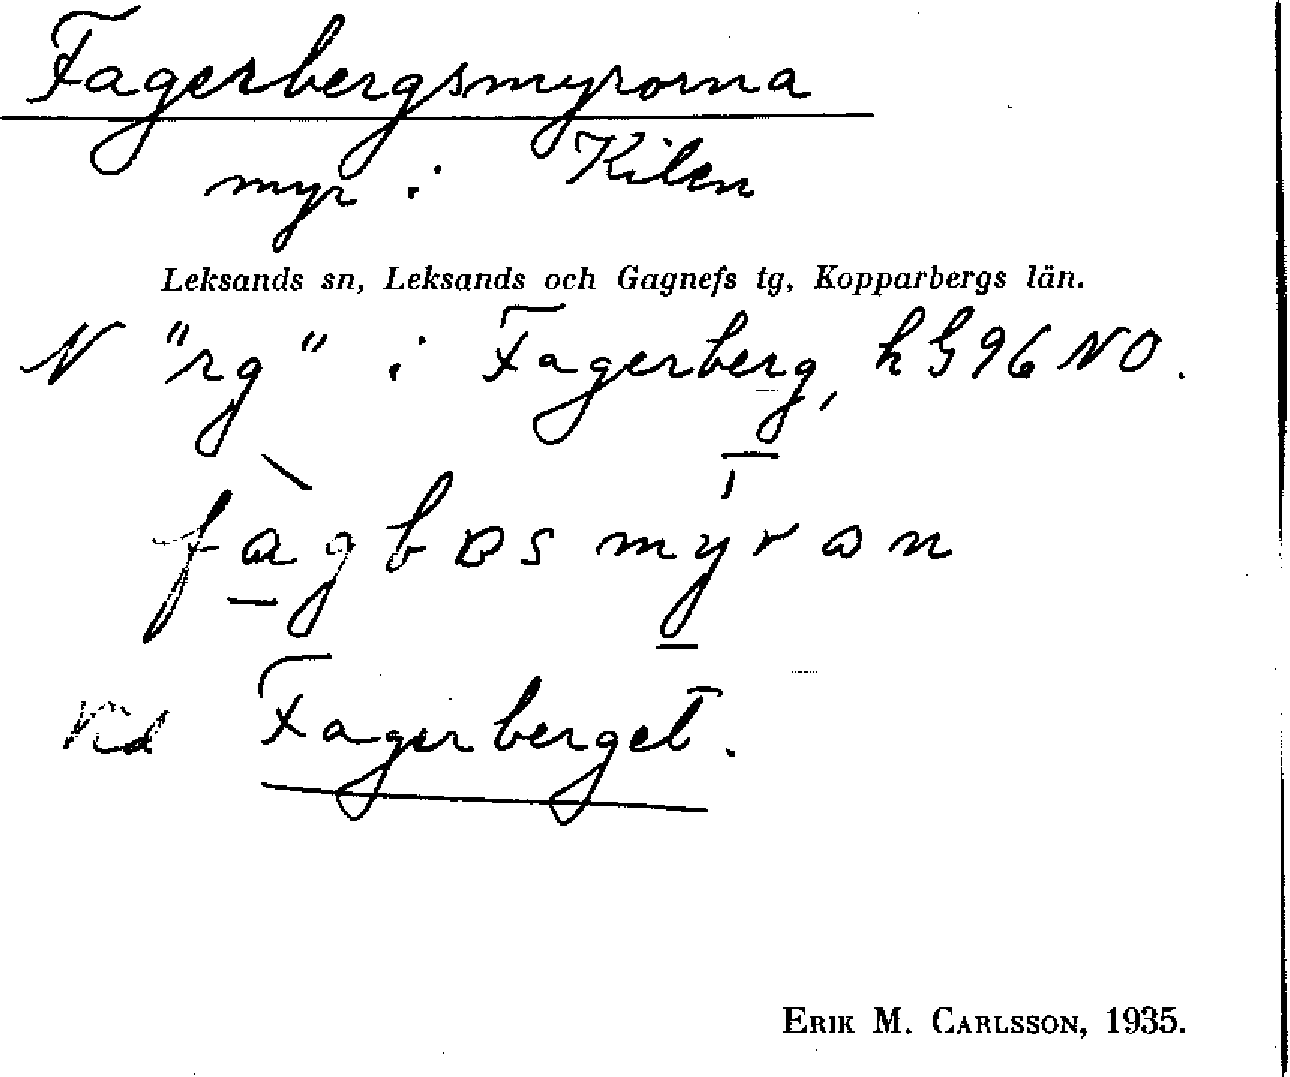 Fagerbergsmyrorna
myr i Kilen
Leksands sn, Leksands och Gagnefs tg, Kopparbergs län.
N "rg" i Fagerberg, hG96NO.
fàgbɒsmyrɷn
Vid Fagerberget.
ERIK M. CARLSSON, 1935.